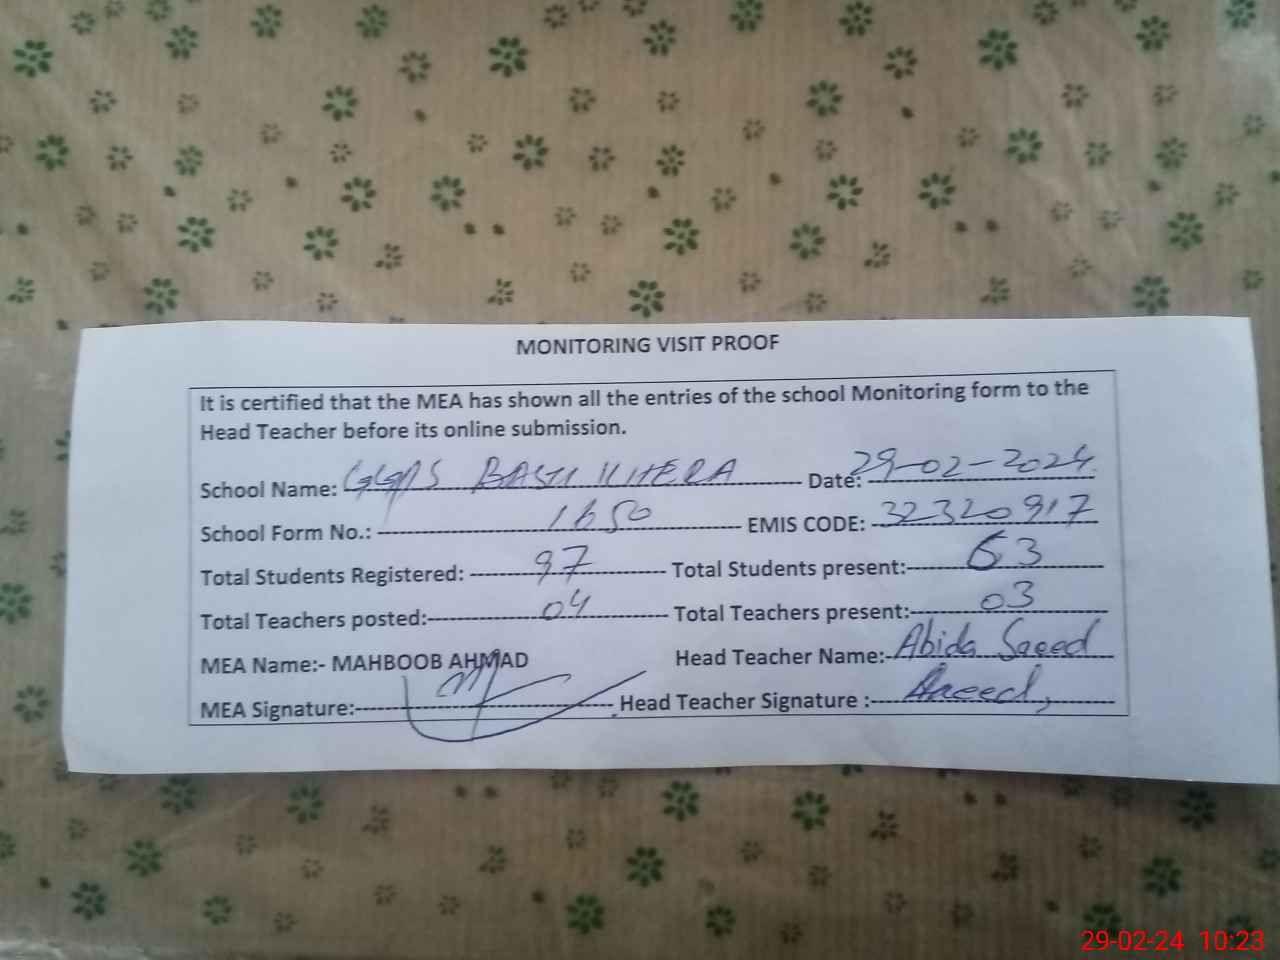 MONITORING VISIT PROOF
It is certified that the MEA has shown all the entries of the school Monitoring form to the
Head Teacher before its online submission.
School Name: GGPS BASTI KHERA Date: 29-02-2024
School Form No.: 1650 EMIS CODE: 32320917
Total Students Registered: 97 Total Students present: 63
Total Teachers posted: 04 Total Teachers present: 03
MEA Name:- MAHBOOB AHMAD Head Teacher Name:- Abida Saeed
MEA Signature: Head Teacher Signature : Saeed
29-02-24 10:23